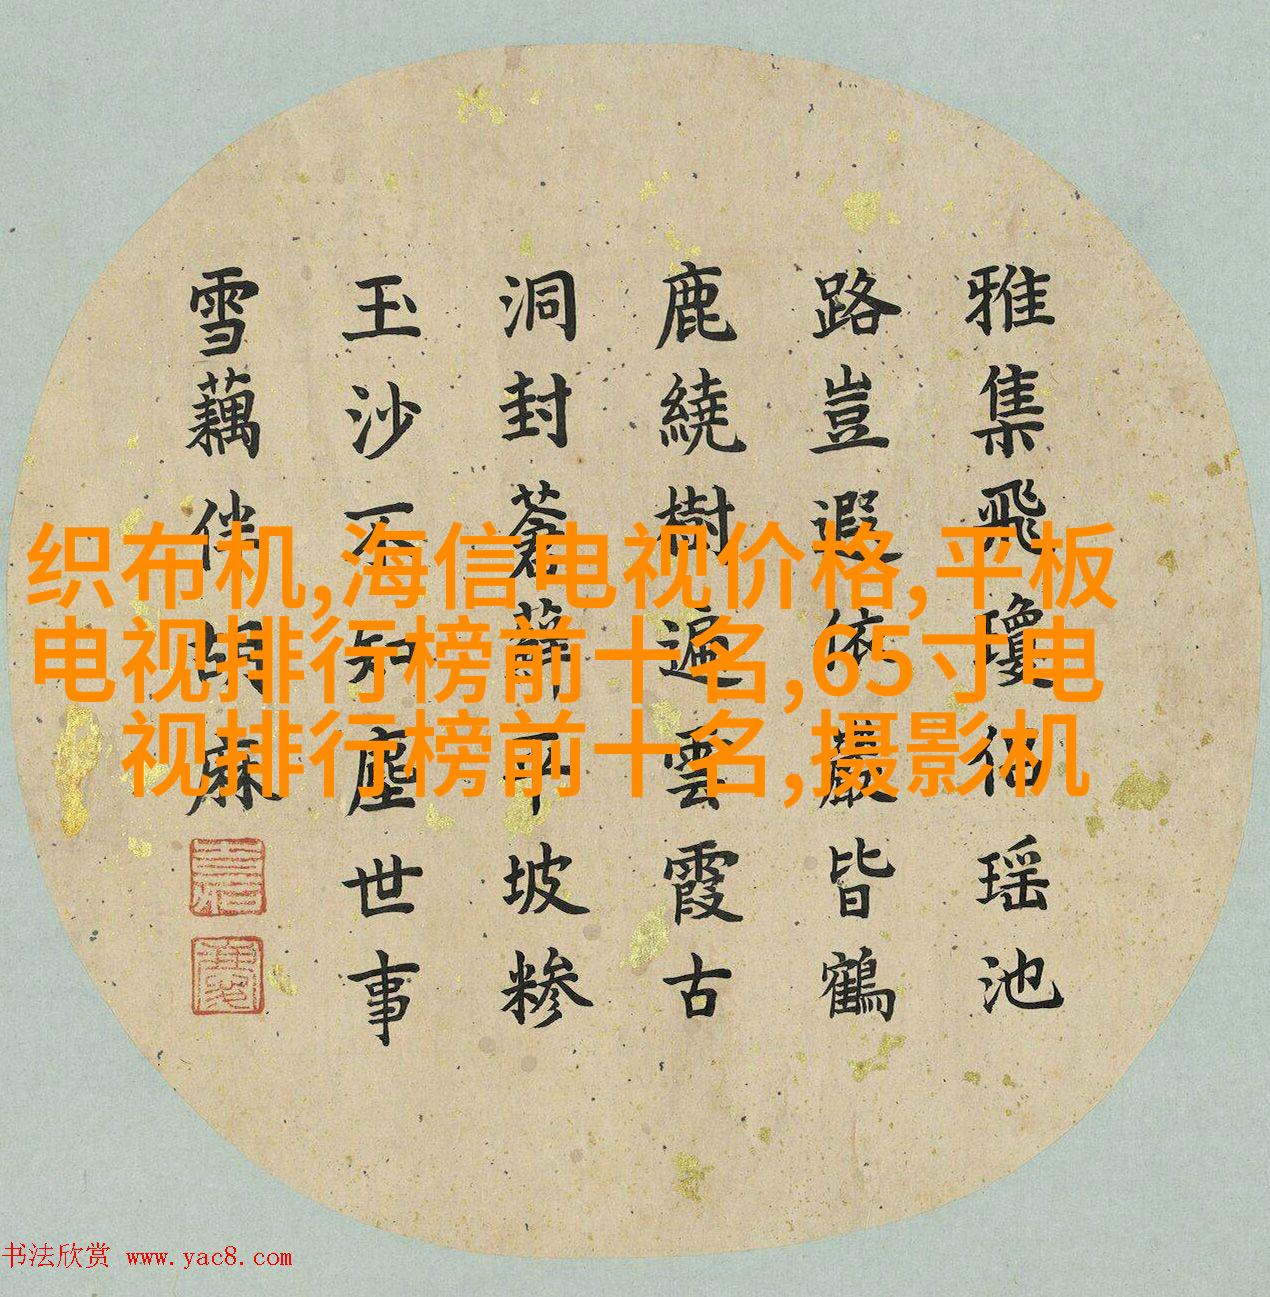 雅集飛瓊瑶池
路豈遐依巖皆鶴
鹿繞樹遍雲霞古
洞封蒼蘚平坡糁
玉沙不知塵世事
雪藕伴麻
织布机,海信电视价格,平板
电视排行榜前十名,65寸电
视排行榜前十名,摄影机
书法欣赏 www.yac8.com